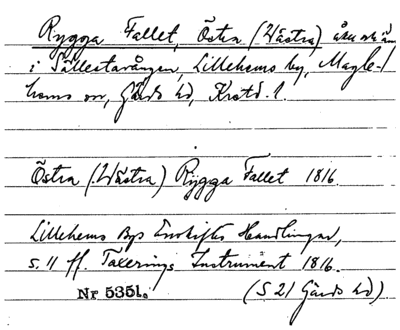 Rygga Fallet, Östra (Västra) åker o äng
i Sällestavången, Lillehems by, Magle-
hems sn, Gärds hd, Krstd. l.
Östra (Wästra) Rygga Fallet 1816.
Lillehems Bys Enskiftes Handlingar,
s. 11 ff. Taxerings Instrument 1816.
Nr 5351. (S 21 Gärds hd)